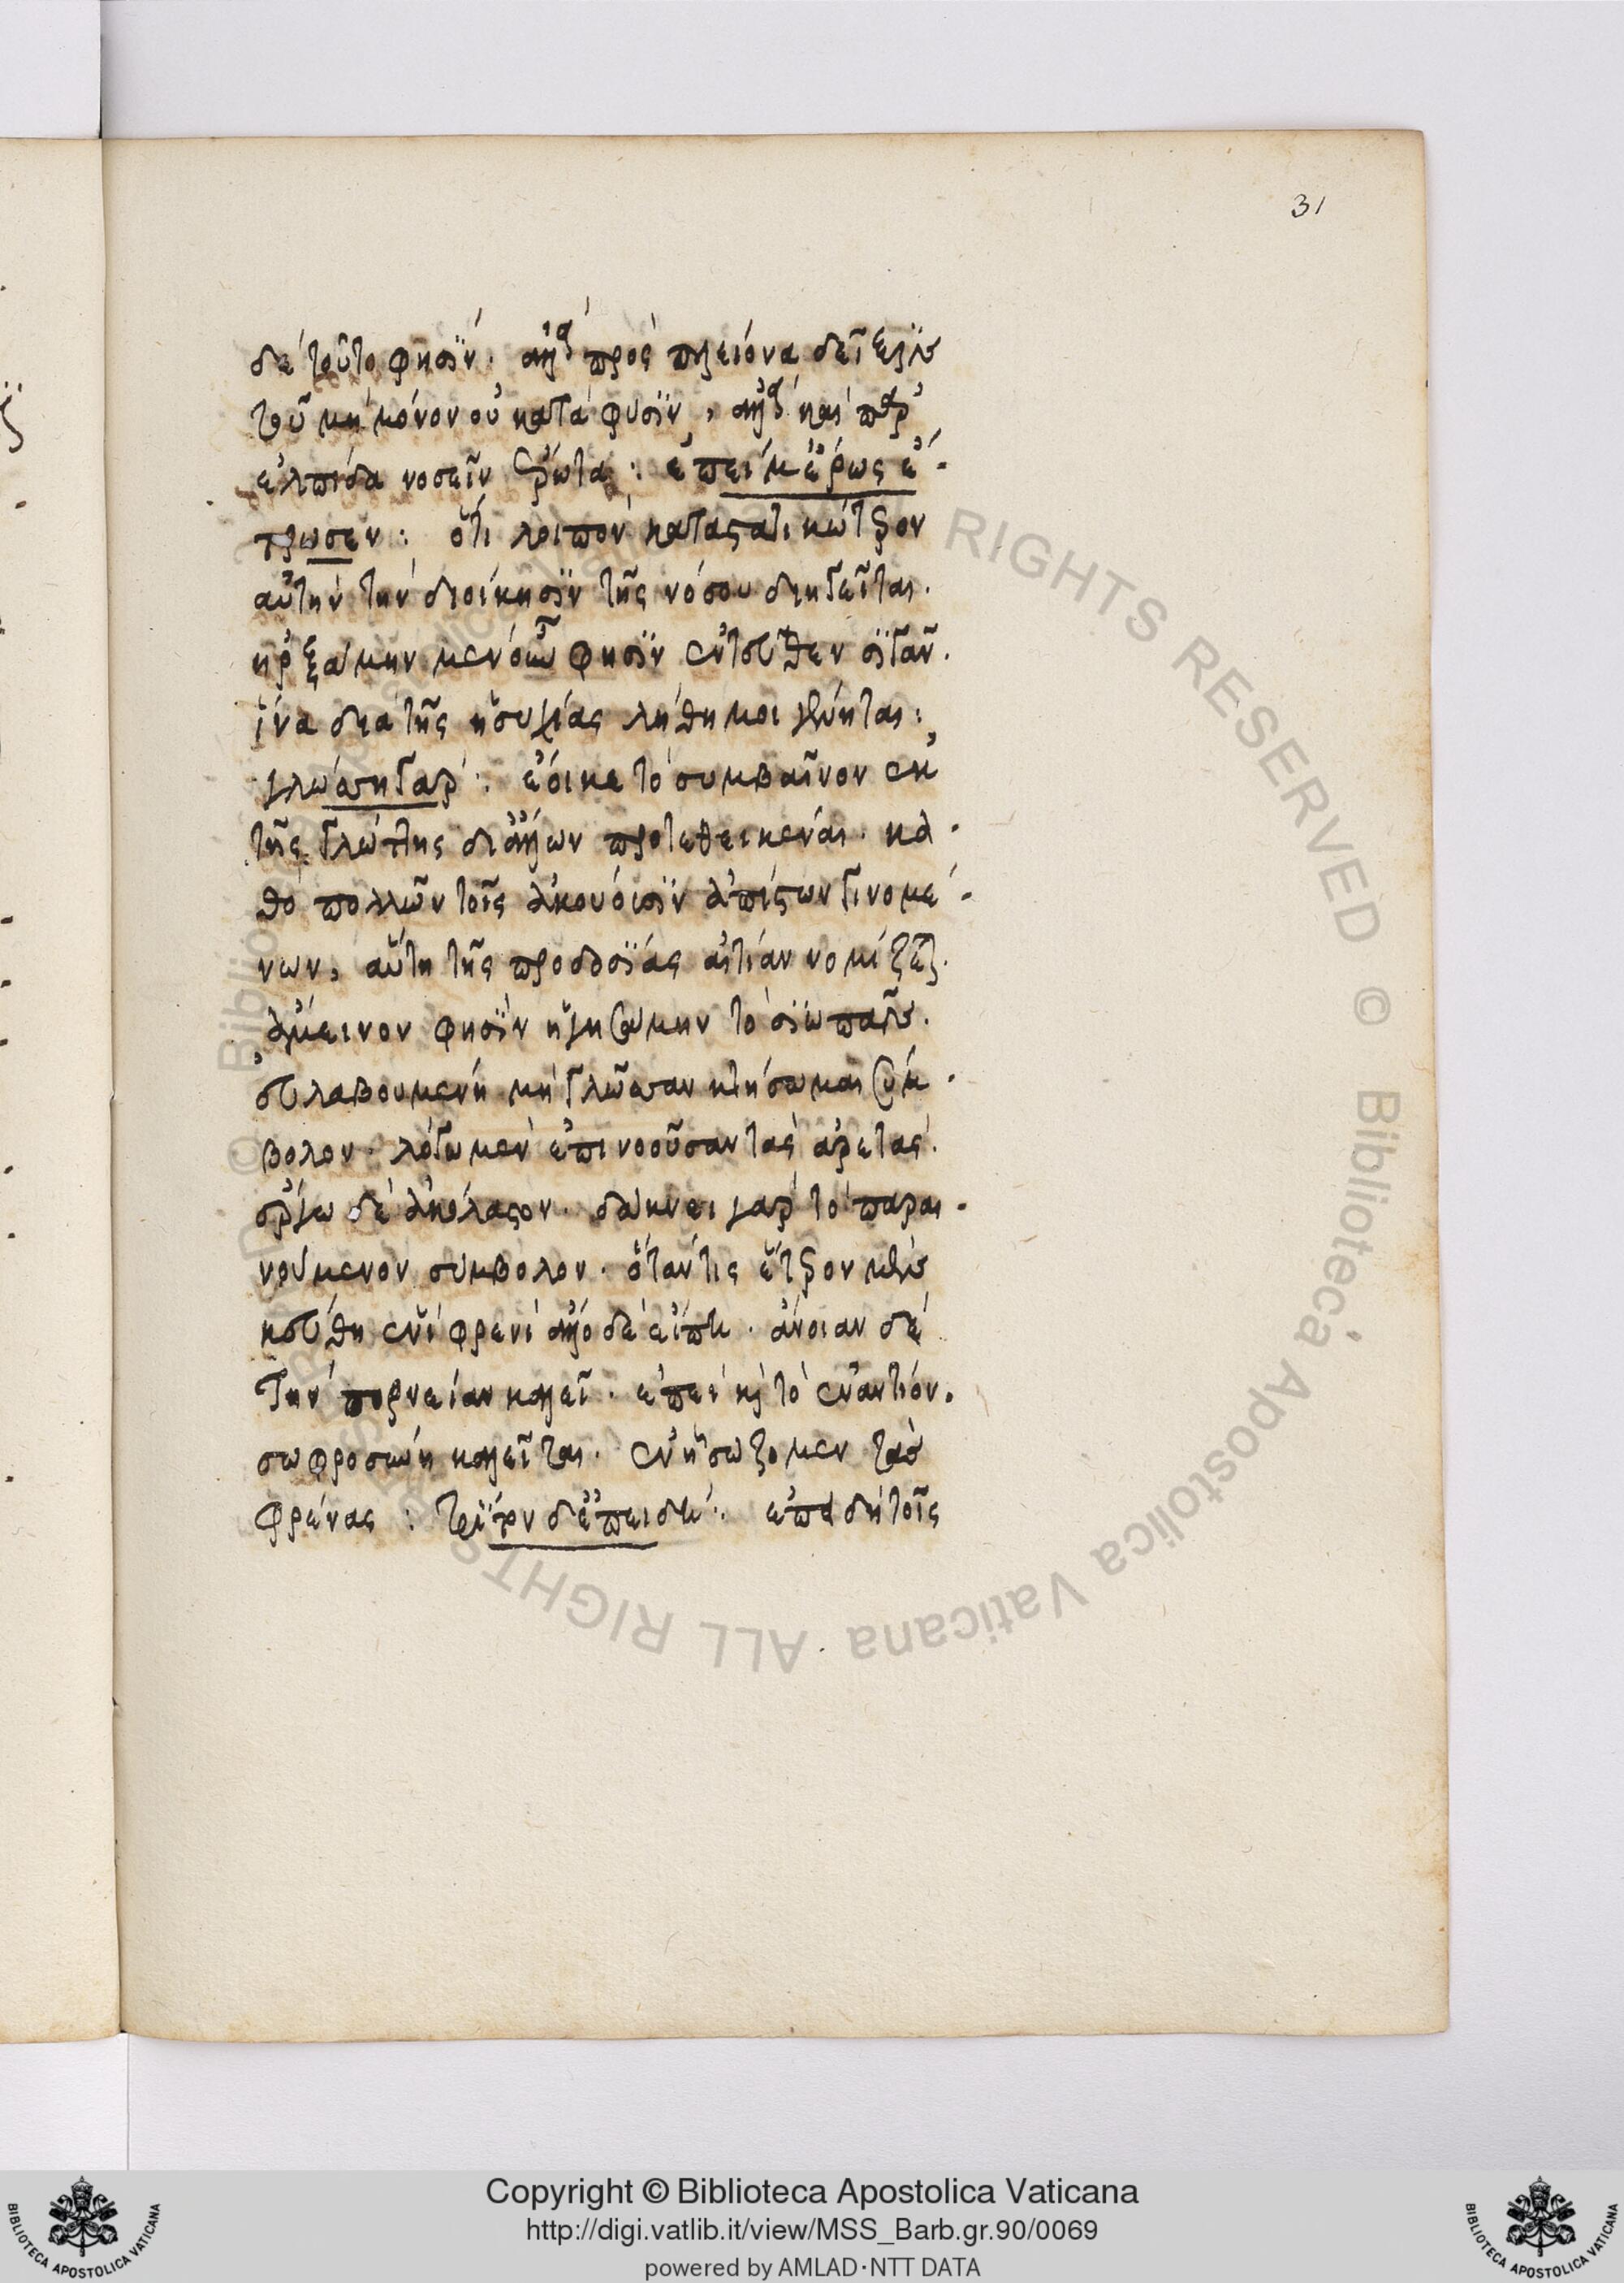 31
δὲ τοῦτο φησὶν· ἀλλὰ πρὸς πλείονα δεῖ ἐλθεῖν
τοῦ μὴ μόνον οὐ κατὰ φύσιν, ἀλλὰ καὶ παρ'
ἐλπίδα νοσεῖν ἔρωτα: ἐπεί μ' ἔρως ἔ-
τρωσεν: ὅτι λοιπὸν καταστατικώτερον
αὐτὴν τὴν διοίκησιν τῆς νόσου διηγεῖται.
ἠρξάμην μὲν οὖν φησὶν ἐντεῦθεν σιγᾶν.
ἵνα διὰ τῆς ἡσυχίας λήθη μοι γένηται:
γλώσσῃ γὰρ: ἔοικε τὸ συμβαῖνον ἐκ
τῆς γλώττης δι' ἄλλων προτεθεικέναι. κα-
θὸ πολλῶν τοῖς ἀκούουσιν ἀπίστων γινομέ-
νων, αὕτη τῆς προδοσίας αἰτίαν νομίζεται.
ἄμεινον φησὶν ἡγησάμην τὸ σιωπᾶν.
εὐλαβουμένη μὴ γλῶσσαν κτήσωμαι σύμ-
βολον. λόγω μὲν ἐπινοοῦσαν τὰς ἀρετάς.
ἔργω δὲ ἀκόλαστον. δάκνει γὰρ τὸ παραι-
νούμενον σύμβολον. ὅταν τις ἕτερον μὲν
κεύθη ἐνὶ φρενὶ ἄλλο δὲ εἴπη. ἄνοιαν δὲ
τὴν πορνείαν καλεῖ. ἐπεὶ καὶ τὸ ἐναντίον.
σωφροσύνη καλεῖται. ἐν ᾗ σώζομεν τὰς
φρένας: τρίτον δ' ἐπειδή. ἐπειδὴ τοῖς
Copyright © Biblioteca Apostolica Vaticana
http://digi.vatlib.it/view/MSS_Barb.gr.90/0069
powered by AMLAD·NTT DATA
BIBLIOTECA APOSTOLICA VATICANA
BIBLIOTECA APOSTOLICA VATICANA
© Biblioteca Apostolica Vaticana ALL RIGHTS RESERVED